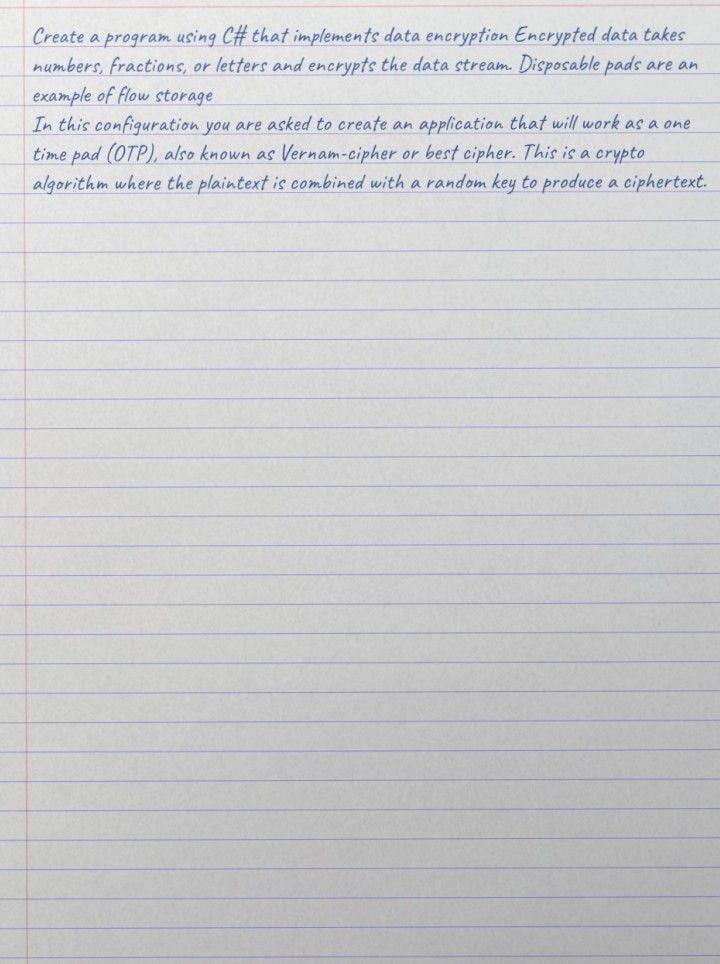 Create a program using C# that implements data encryption Encrypted data takes
numbers, fractions, or letters and encrypts the data stream. Disposable pads are an
example of flow storage
In this configuration you are asked to create an application that will work as a one
time pad (OTP), also known as Vernam-cipher or best cipher. This is a crypto
algorithm where the plaintext is combined with a random key to produce a ciphertext.